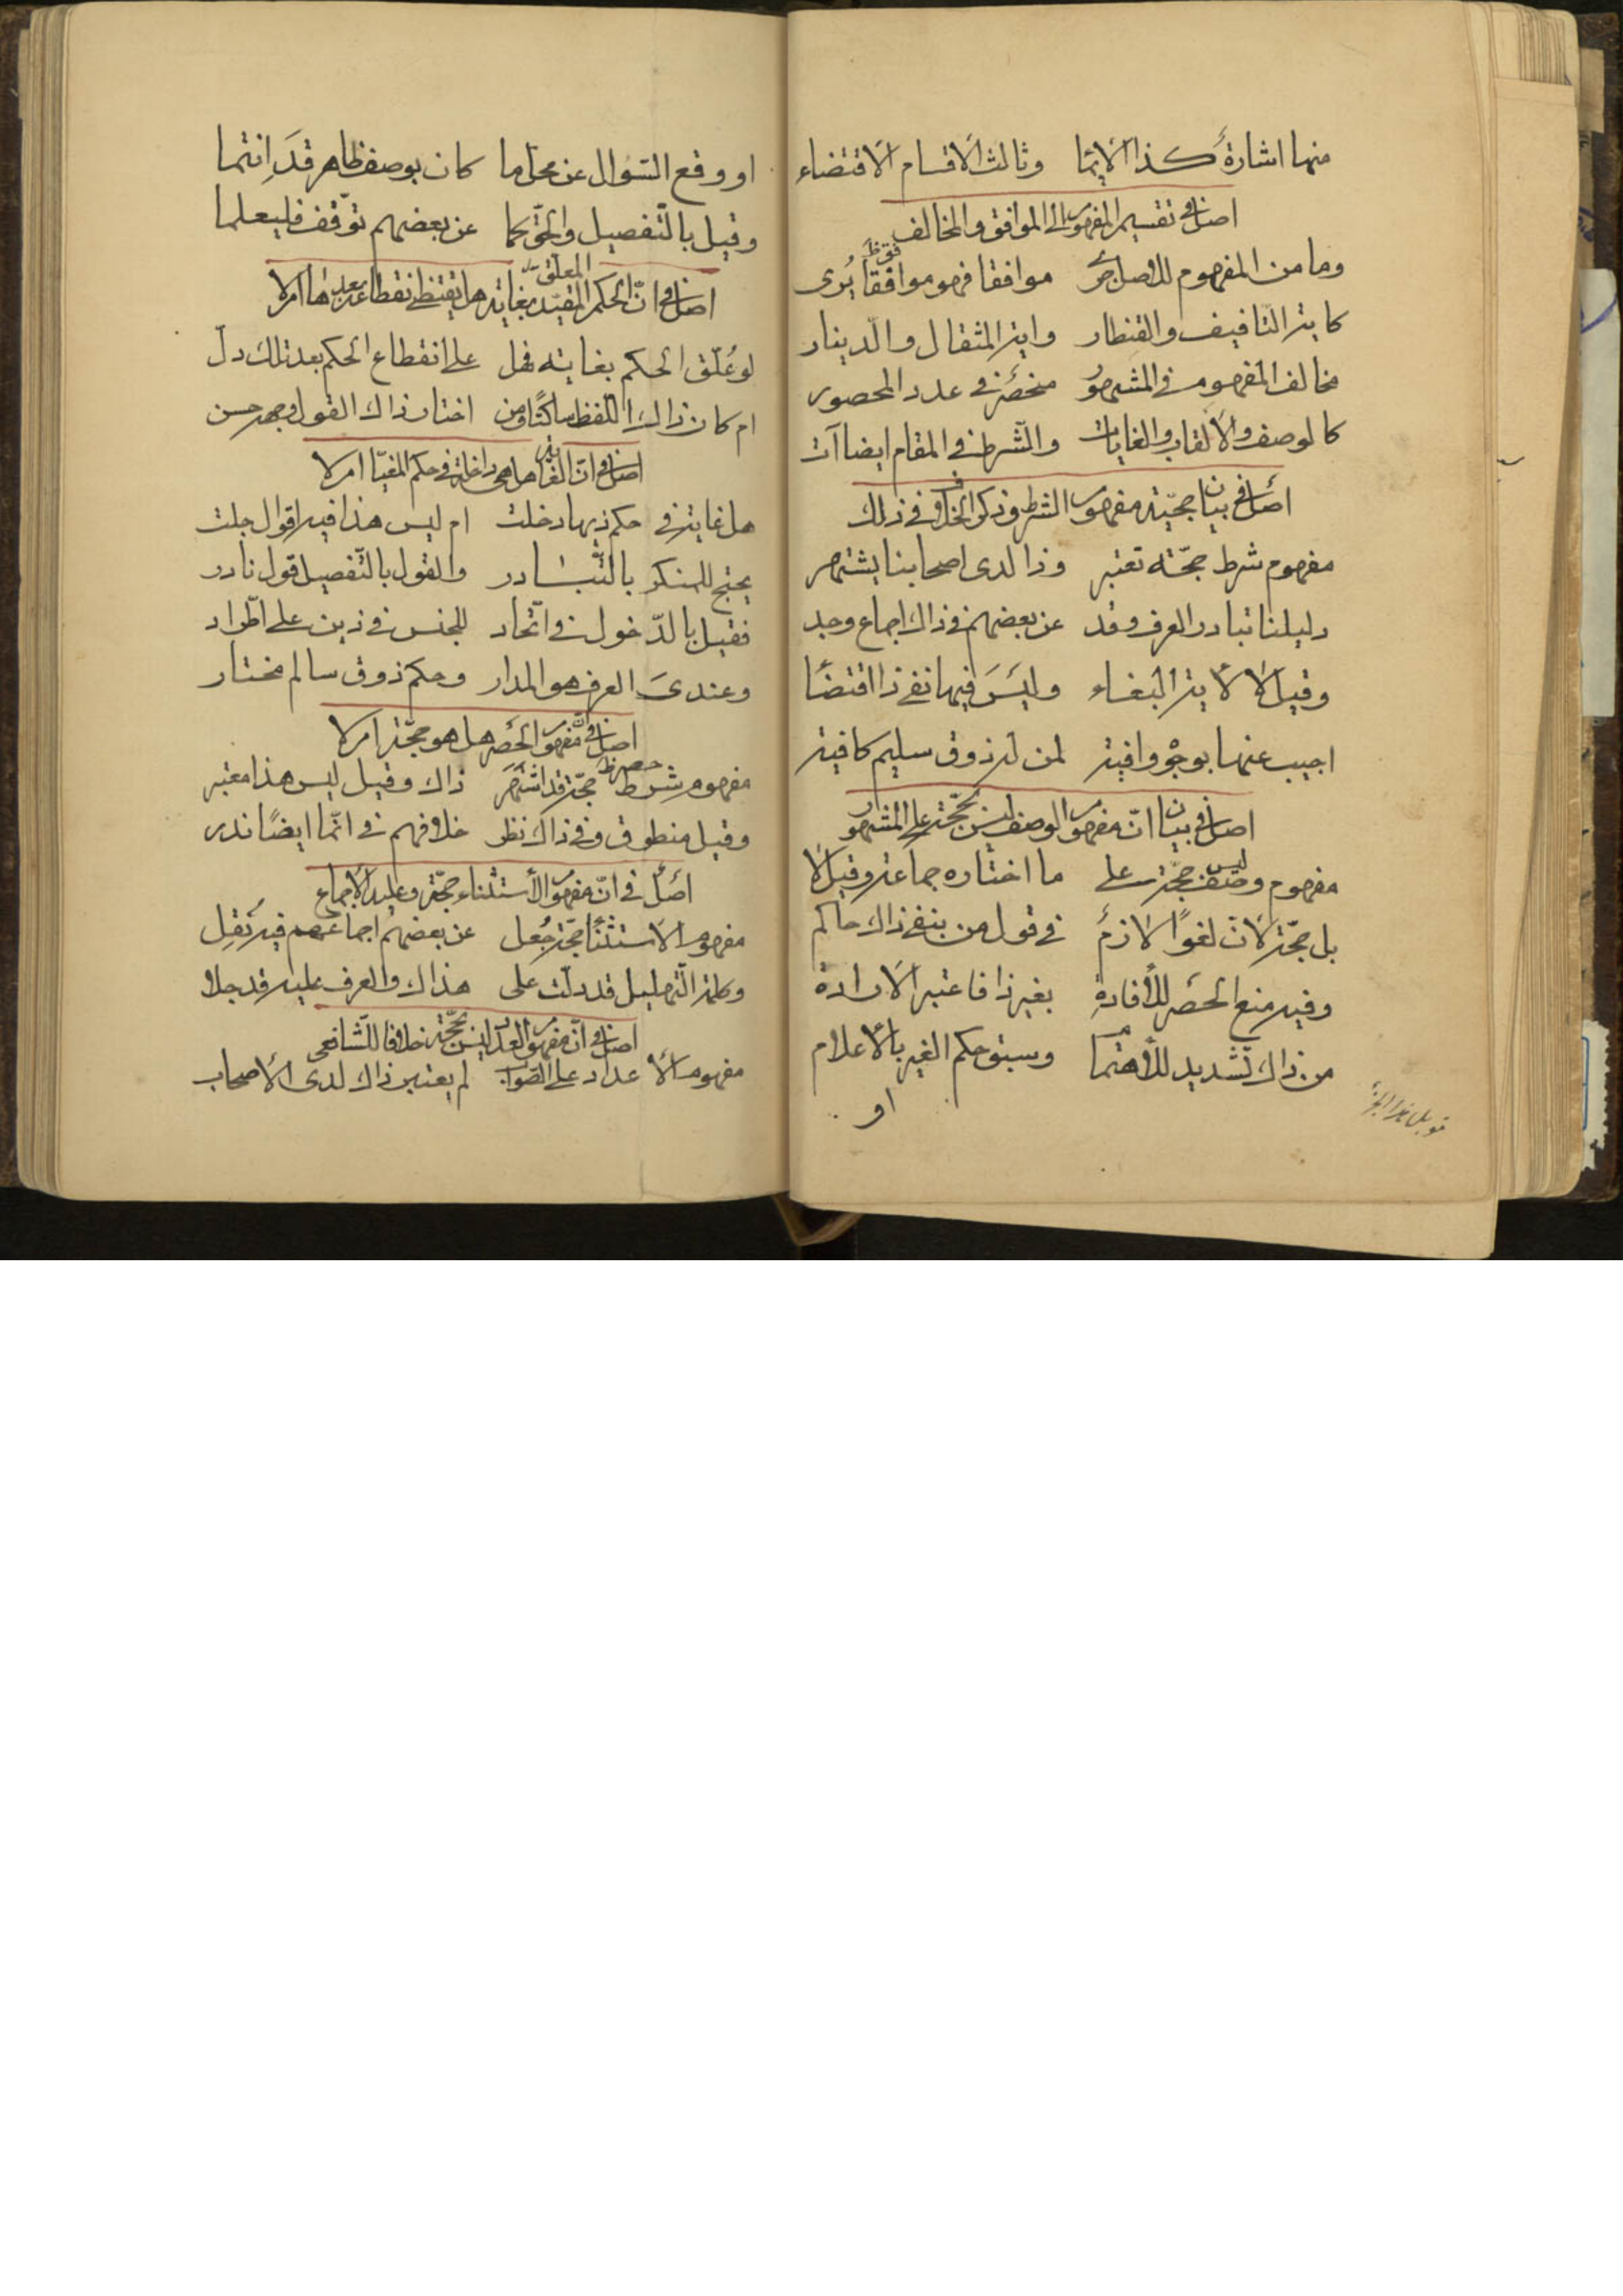 منها اشارة كذا الايما وثالث الاقسام الاقتضاء
اصل فى تقسيم المفهوم الى الموافق والمخالف
وما من المفهوم للاصل جرى موافقا فهو موافقا يُرى
كاية التافيف والقنطار واية المثقال والدينار
مخالف المفهوم فى المشهور منحصر فى عدد المحصور
كالوصف والالقاب والغايات والشرط فى المقام ايضا آت
اصل فى بيان حجيّة مفهوم الشرط وذكر الخلاف فى ذلك
مفهوم شرط حجّة تعتبر وذا لدى اصحابنا يشتهر
دليلنا تبادر العرف وقد عن بعضهم فى ذاك اجماع وجد
وقيل لا لاية البغاء وليس فيها نفى ذا اقتضا
اجيب عنها بوجوه وافية لمن له ذوق سليم كافية
اصل فى بيان انّ مفهوم الوصف ليس بحجّة على المشهور
مفهوم وصف ليس حجّة على ما اختاره جماعة وقيل لا
بل حجّة لان لغوًا لازم فى قول من بنفى ذاك حاكم
وفيه منع الحصر للأفادة بغير ذا فاعتبر الارادة
من ذاك تشديد للأهتمام وسبق حكم الغير بالأعلام
او
قوبل هذا الجزء
او وقع السّؤال عن محلّ ما كان بوصف ظاهر قد انتما
وقيل بالتّفصيل والحقّ كما عن بعضهم توقّف فليعلما
اصل فى انّ الحكم المقيّد المعلّق بغاية هل يقتضى انقطاعه بعدها ام لا
لو عُلّق الحكم بغاية فهل على انقطاع الحكم بعد تلك دل
ام كان ذاك اللفظ ساكتًا ومن اختار ذاك القول وجهه حسن
اصل فى انّ الغاية هل هى داخلة فى حكم المغيّا ام لا
هل غاية فى حكم ذيها دخلت ام ليس هذا فيه اقوال جلت
يحتج للمنكر بالتّبادر والقول بالتّفصيل قول نادر
فقيل بالدّخول فى اتّحاد للجنس فى ذين على اطّراد
وعندى العرف هو المدار وحكم ذوق سالم مختار
اصل فى انّ مفهوم الحصر هل هو حجّة ام لا
مفهوم شرط حصر ظ حجّة قد اشتهر ذاك وقيل ليس هذا معتبر
وقيل منطوق وفى ذاك نظر خلافهم فى انّما ايضًا ندر
اصل فى انّ مفهوم الأستثناء حجّة وعليه الأجماع
مفهوم الاستثنا حجّة جُعل عن بعضهم اجماعهم فيه نُقِل
وكلمة التّهليل قد دلّت على هذاك والعرف عليه قد جلا
اصل فى انّ مفهوم العدد ليس بحجّة خلافا للشّافعى
مفهوم الأعداد على الصّواب لم يعتبر ذاك لدى الأصحاب